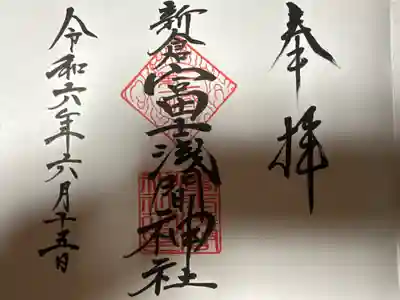 奉拝
新倉富士浅間神社
令和六年六月十五日